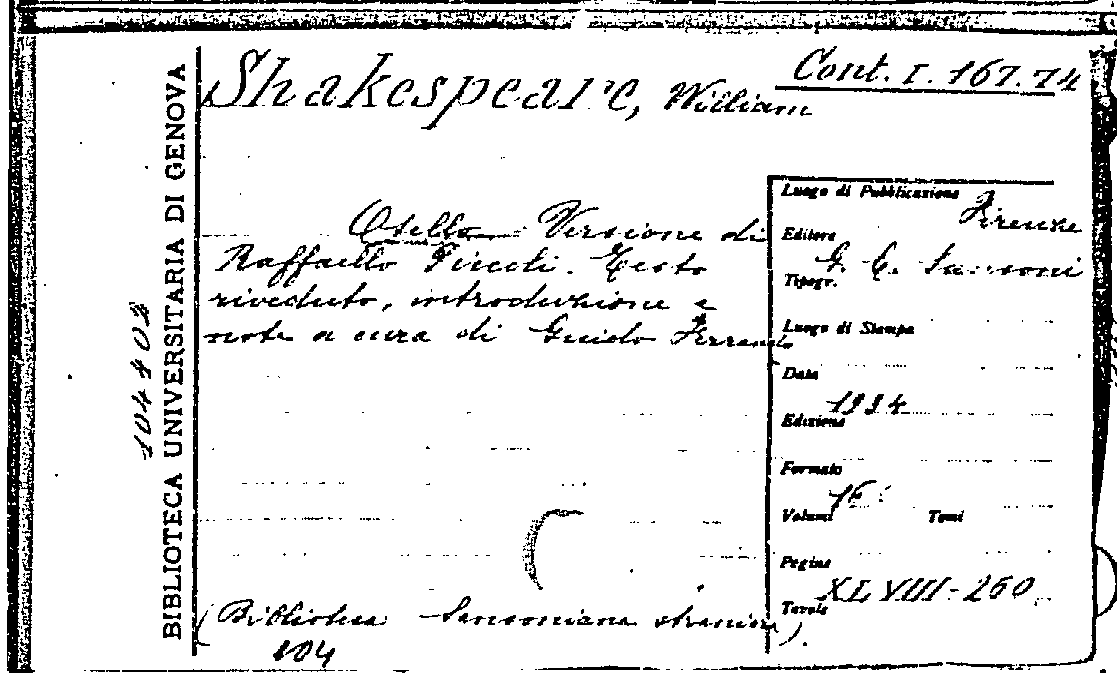 Cont. I. 167.74
Shakespeare, William
Otello Versione di
Raffaello Piccoli. Testo
riveduto, introduzione e
note a cura di Guido Ferrando
(Biblioteca Sansoniana straniera).
104
BIBLIOTECA UNIVERSITARIA DI GENOVA
104402
Luogo di Pubblicazione
Firenze
Editore
G. C. Sansoni
Tipogr.
Luogo di Stampa
Data
1934
Edizione
Formato
16°
Volumi Tomi
Pagine
XLVIII-260
Tavole